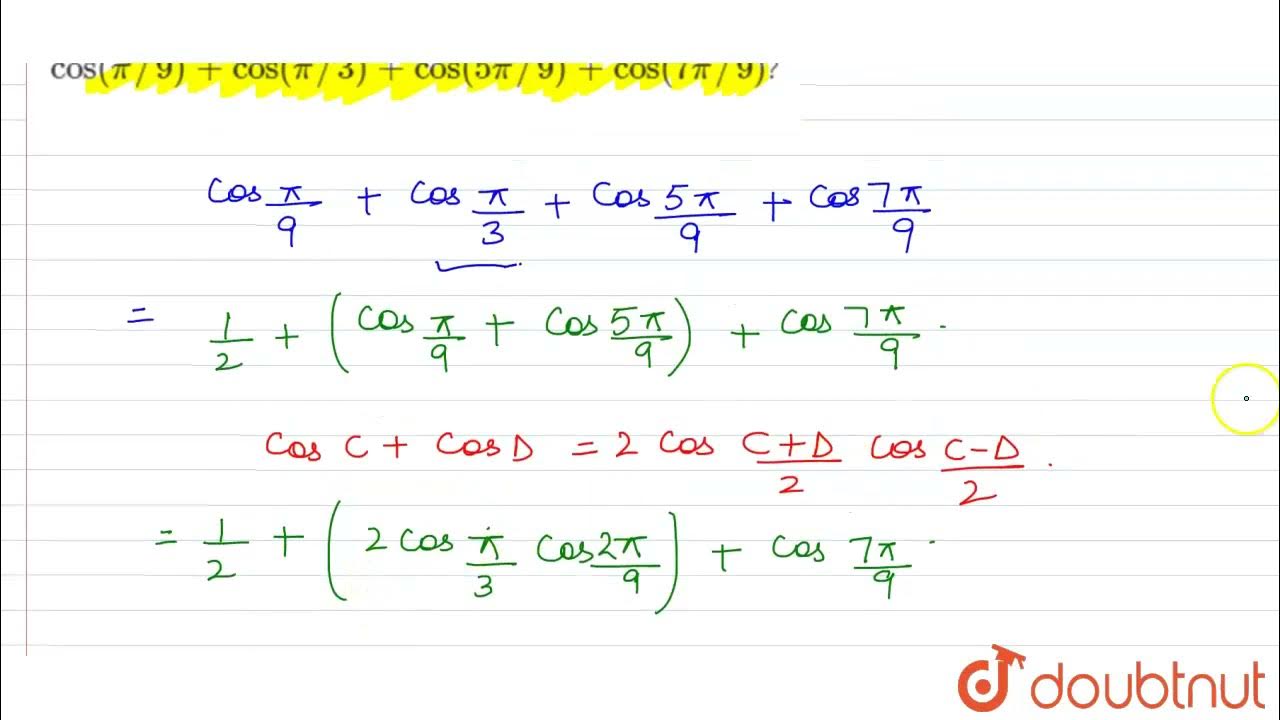 cos(π/9) + cos(π/3) + cos(5π/9) + cos(7π/9)?
cos π/9 + cos π/3 + cos 5π/9 + cos 7π/9
= 1/2 + (cos π/9 + cos 5π/9) + cos 7π/9 .
cos C + cos D = 2 cos C+D/2 cos C-D/2 .
= 1/2 + (2 cos π/3 cos 2π/9) + cos 7π/9 .
doubtnut